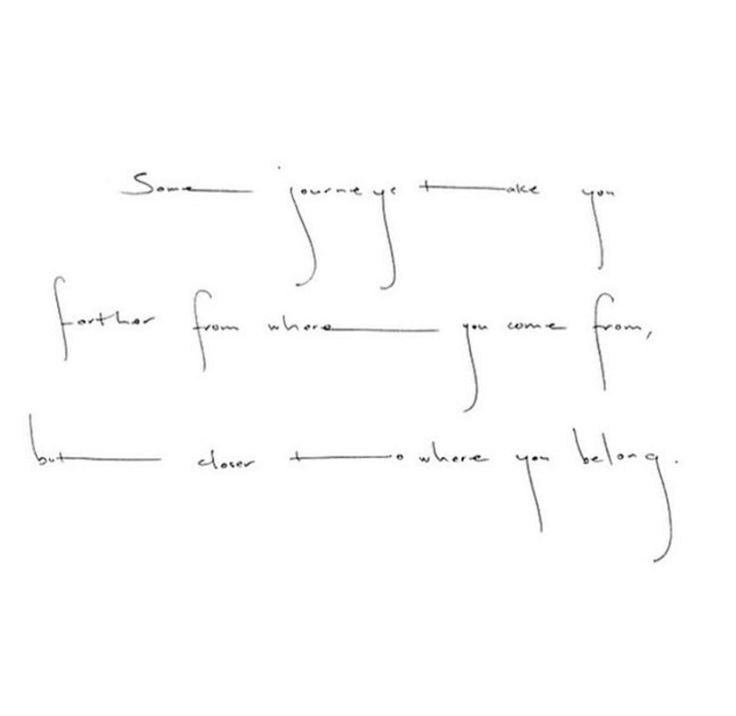 Some journeys take you
farther from where you come from,
but closer to where you belong.